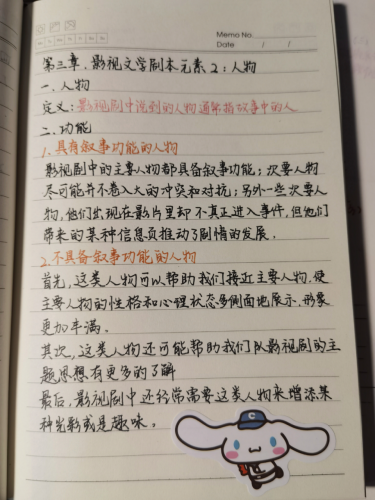 Memo No.
Date / /
第三章.影视文学剧本元素2:人物
一.人物
定义:影视剧中说到的人物通常指故事中的人
二.功能
1.具有叙事功能的人物
影视剧中的主要人物都具备叙事功能;次要人物
尽可能并不卷入大的冲突和对抗;另外一些次要人
物,他们出现在影片里却不真正进入事件,但他们
带来的某种信息员推动了剧情的发展.
2.不具备叙事功能的人物
首先,这类人物可以帮助我们接近主要人物,使
主要人物的性格和心理状态多侧面地展示,形象
更加丰满.
其次,这类人物还可能帮助我们队影视剧的主
题思想有更多的了解
最后,影视剧中还经常需要这类人物来增添某
种光彩或是趣味。
C